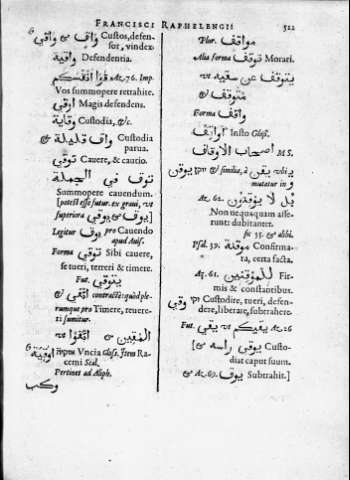 FRANCISCI RAPHELENGII 522
واقي & واف Custos, defensor, vindex.
واقية Defendentia.
قوا انفسكم Ac. 76. Imp.
Vos summopere retrahite.
اوقي Magis defendens.
وقاية Custodia, &c.
واق قليلة & Custodia
parua.
توقي Cauere, & cautio.
توق في الجملة
Summopere cauendum.
[potest esse futur. ex graui, vt
superiora يوقي & يوقي]
Legitur يوق pro Cauendo
apud Auis.
Forma توقي Sibi cauere,
se tueri, terreri & timere.
Fut. يتوقي
& اتقي contractè: quòd plerumque
pro Timere, reuereri
sumitur.
المتقين & اتقوا vt
اوقية Vncia Gloss. Item Racemi
Scal.
Pertinet ad Aliph.
وكب
Plur. مواقف
Alia forma توقف Morari.
vt يتوقف عن سقيه
& متوقف
Forma واقف
اواقف Insto Gloss.
اصحاب الاوقاف M S.
& similia, à يقن vbi
mutatur in و
Ac. 62. بل لا يوقنون
Nonnequaquam asserunt:
dubitanter.
sic 55. & alibi.
Psal. 39. موقنة Confirmata,
certa facta.
Aq. 61. للموقنين Firmis
& constantibus.
وقي Custodire, tueri, defendere,
liberare, subtrahere.
Fut. يقي vt يقيكم Ac. 26
& يوقي راسه Custodiat
caput suum.
& Ac. 69. يوق Subtrahit.]